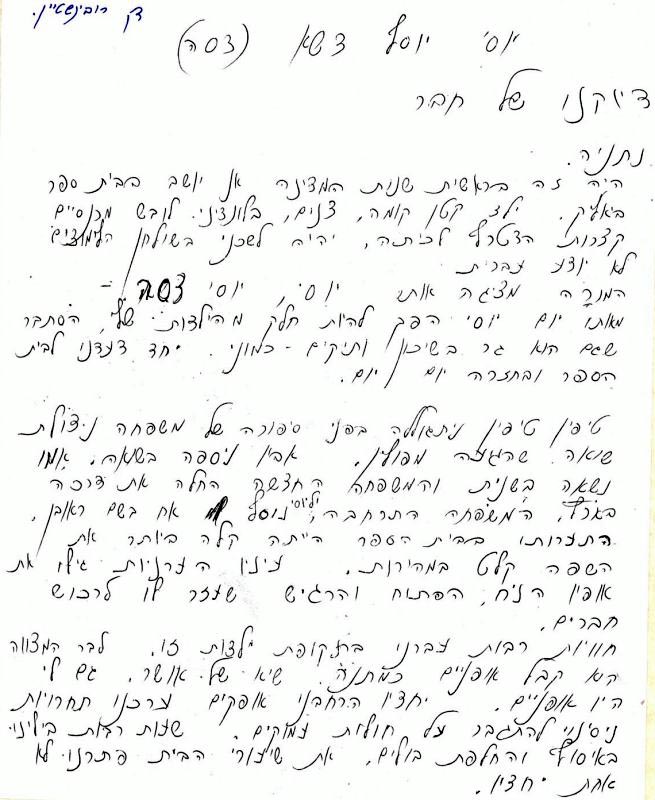 דן רובינשטיין.
יוסי יוסף דשא (דסה)
דיוקנו של חבר
נתניה.
היה זה בראשית שנות המדינה אני יושב בבית ספר
ביאליק. ילד קטן קומה, צנום, בלונדיני לובש מכנסיים
קצרות הצטרף לכיתה, יהיה לשכני בשולחן הלימודים
לא יודע עברית
המורה מציגה אותו יוסי, יוסי דסה -
מאותו יום יוסי הפך להיות חלק מהילדות שלי, הסתבר
שגם הוא גר בשיכון ותיקים - כמוני. יחד צעדנו לבית
הספר ובחזרה יום יום.
טיפין טיפין ניתגוללה בפני סיפורה של משפחה ניצולת
שואה שהגיעה מפולין. אביו ניספה בשואה, אמו
נשאה בשנית והמשפחה החדשה החלה את דרכה
בארץ, המשפחה התרחבה, ליוסי נוסף אח בשם ראובן.
התערותו בבית הספר הייתה קלה ביותר את
השפה קלט במהירות. עיניו הערניות גילו את
אופיו הנוח, הפתוח והרגיש שעזר לו לרכוש
חברים.
חוויות רבות עברנו בתקופת ילדות זו. לבר המצווה
הוא קבל אופניים כמתנה. שיא של אושר. גם לי
היו אופניים. יחדיו הרחבנו אופקים ערכנו תחרויות
ניסינו להתגבר על חולות עמוקים. שעות רבות בילינו
באיסוף והחלפת בולים, את שיעורי הבית פתרנו לא
אחת יחדיו.